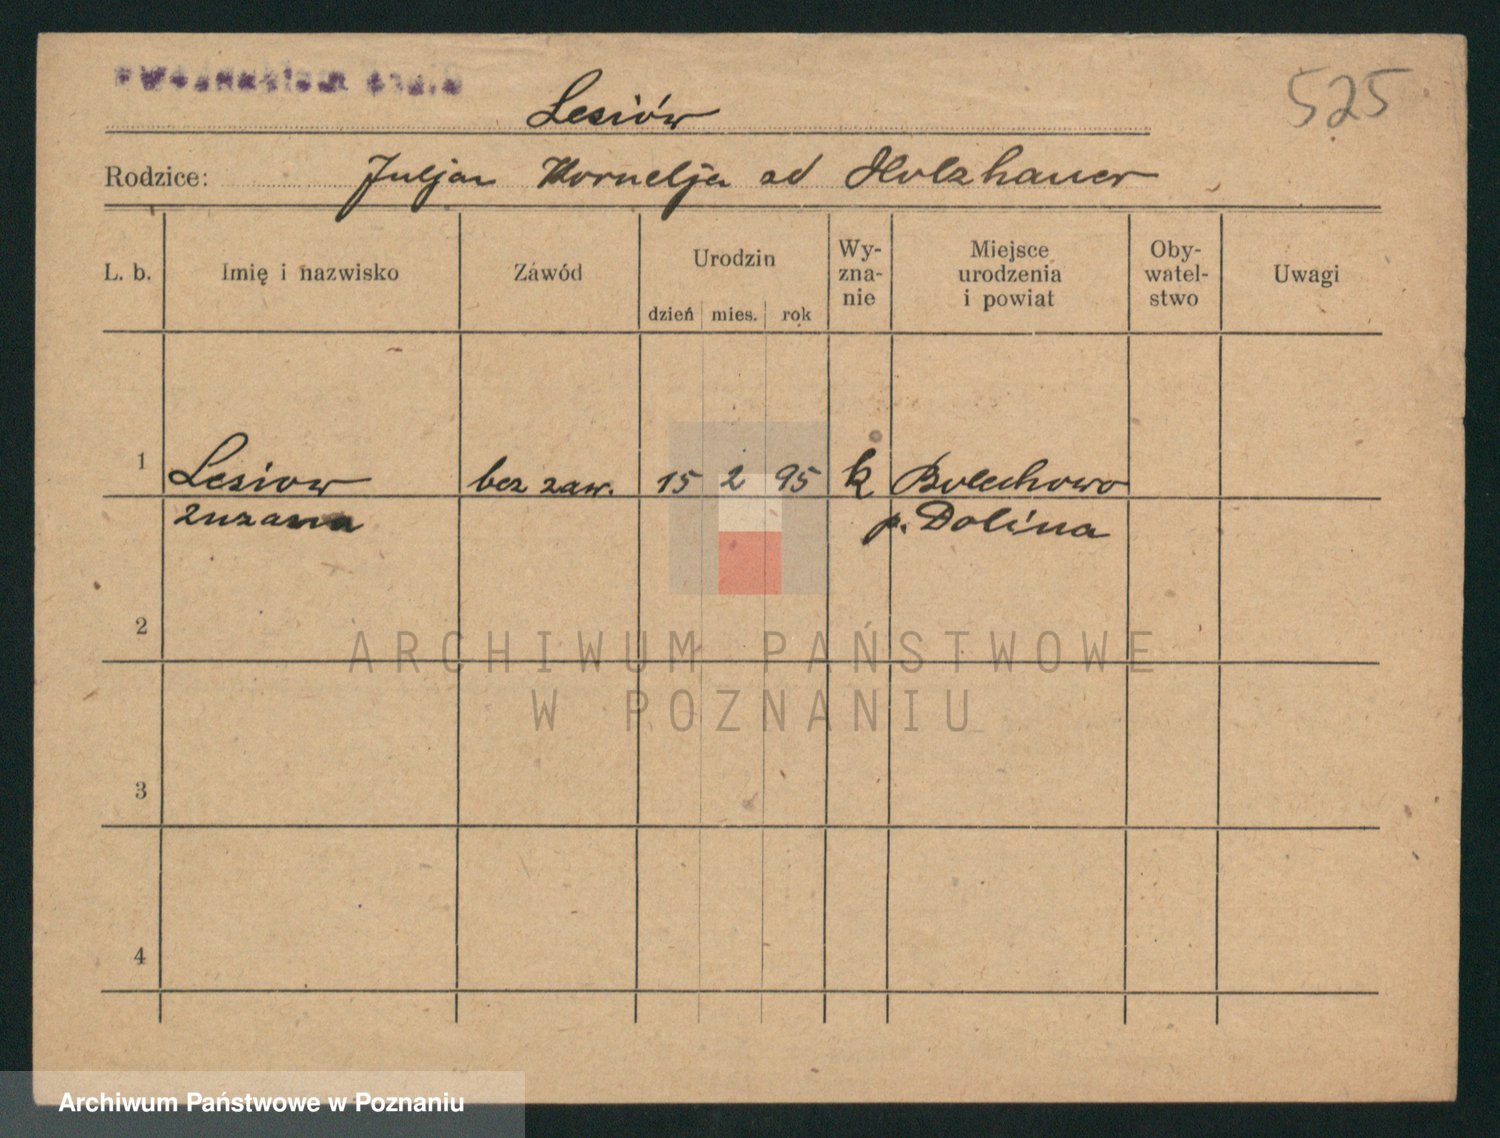 525
Lesiów
Rodzice: Juljan Kornelja od Holzhauer
L. b. Imię i nazwisko Zawód Urodzin dzień mies. rok Wy-zna-nie Miejsce urodzenia i powiat Oby-watel-stwo Uwagi
1 Lesiow bez zaw. 15 2 95 k Bolechowo
Zuzanna p. Dolina
2
ARCHIWUM PAŃSTWOWE
W POZNANIU
3
4
Archiwum Państwowe w Poznaniu